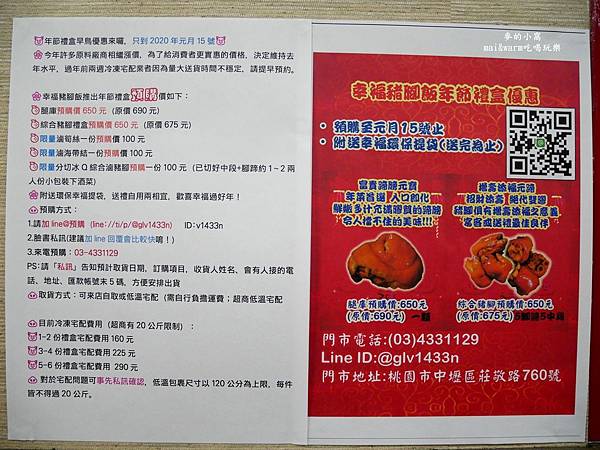 年節禮盒早鳥優惠來囉，只到 2020 年元月 15 號
今年許多原料廠商相繼漲價，為了給消費者更實惠的價格，決定維持去
年水平，過年前兩週冷凍宅配業者因為量大送貨時間不穩定，請提早預約。
幸福豬腳飯推出年節禮盒預購價如下：
腿庫預購價 650 元（原價 690 元）
綜合豬腳禮盒預購價 650 元（原價 675 元）
限量滷筍絲一份預購價 100 元
限量滷海帶結一份預購價 100 元
限量分切冰 Q 綜合滷豬腳預購一份 100 元（已切好中段+腳蹄約 1~2 兩
人份小包裝下酒菜）
附送環保幸福提袋，送禮自用兩相宜，歡喜幸福過好年！
預購方式：
1.請加 line@預購（line://ti/p/@glv1433n） ID:v1433n
2.臉書私訊(建議加 line 回覆會比較快唷！)
3.來電預購：03-4331129
PS:請「私訊」告知預計取貨日期，訂購項目，收貨人姓名、會有人接的電
話、地址、匯款帳號末 5 碼，方便安排出貨
取貨方式：可來店自取或低溫宅配（需自行負擔運費；超商低溫宅配
目前冷凍宅配費用（超商有 20 公斤限制）：
1-2 份禮盒宅配費用 160 元
3-4 份禮盒宅配費用 225 元
5-6 份禮盒宅配費用 290 元
對於宅配問題可事先私訊確認，低溫包裹尺寸以 120 公分為上限，每件
皆不得過 20 公斤。
麥的小窩
mai&warm吃喝玩樂
幸福豬腳飯年節禮盒優惠
• 預購至元月15號止
• 附送幸福環保提袋(送完為止)
富貴蹄膀元寶
年菜首選 入口即化
鮮嫩多汁充滿膠質的蹄膀
令人擋不住的美味!!!
腿庫預購價:650元
(原價:690元) 一顆
禮壽添福元蹄
招財添壽 絕代雙腳
豬腳俱有禮壽添福之意義
富客或送禮最佳良伴
綜合豬腳預購價:650元
(原價:675元)
門市電話:(03)4331129
Line ID:@glv1433n
門市地址:桃園市中壢區莊敬路760號